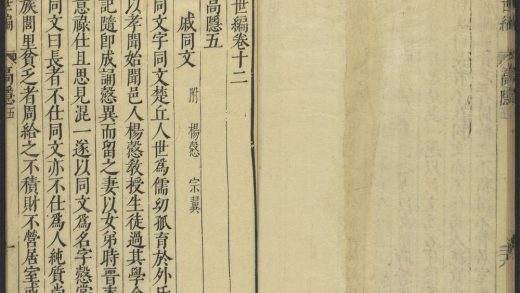 世編
高隱五
世編卷十二
高隱五
戚同文 附 楊愨 宗翼
同文字同文楚丘人世爲儒幼孤育於外氏
以孝聞始聞邑人楊愨教授生徒過其學舍
記隨即成誦愨異而留之妻以女弟時晉末
意祿仕且思見混一遂以同文爲名字愨嘗
同文曰長者不仕同文亦不仕爲人純質尚
族閭里貧乏者周給之不積財不營居室或
世編
高隱五
一